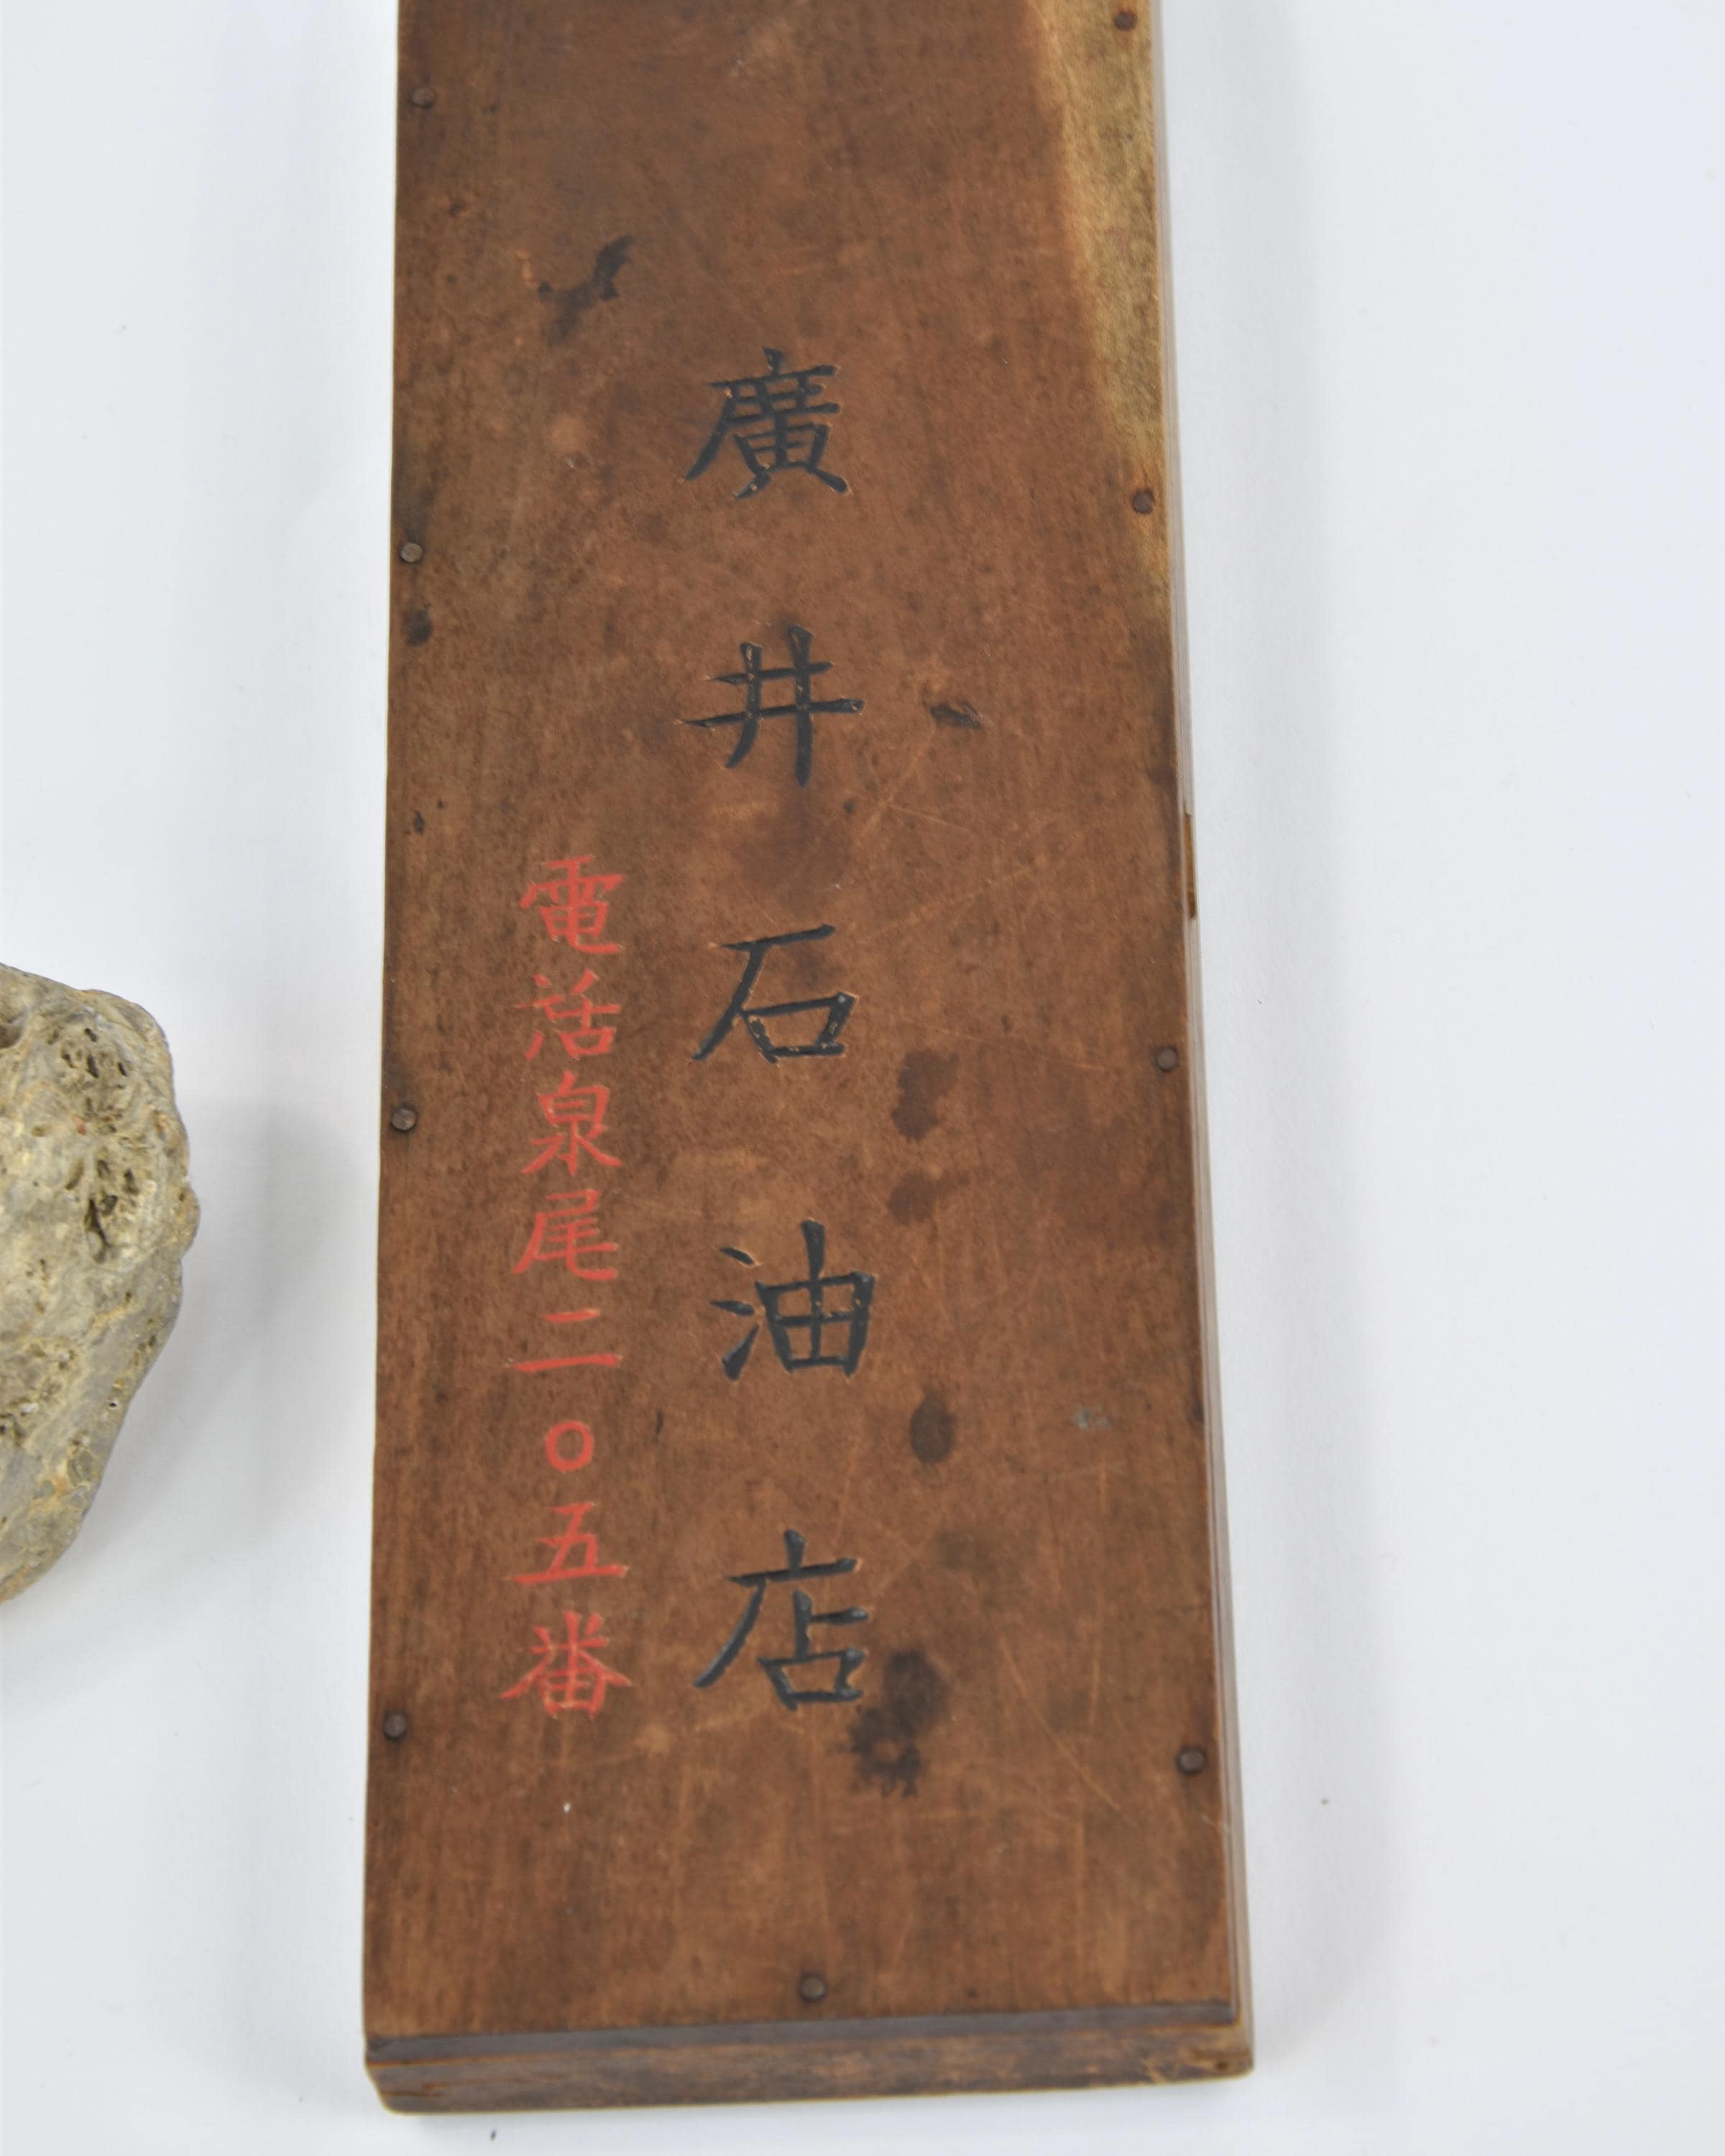 廣井石油店
電話泉尾二〇五番